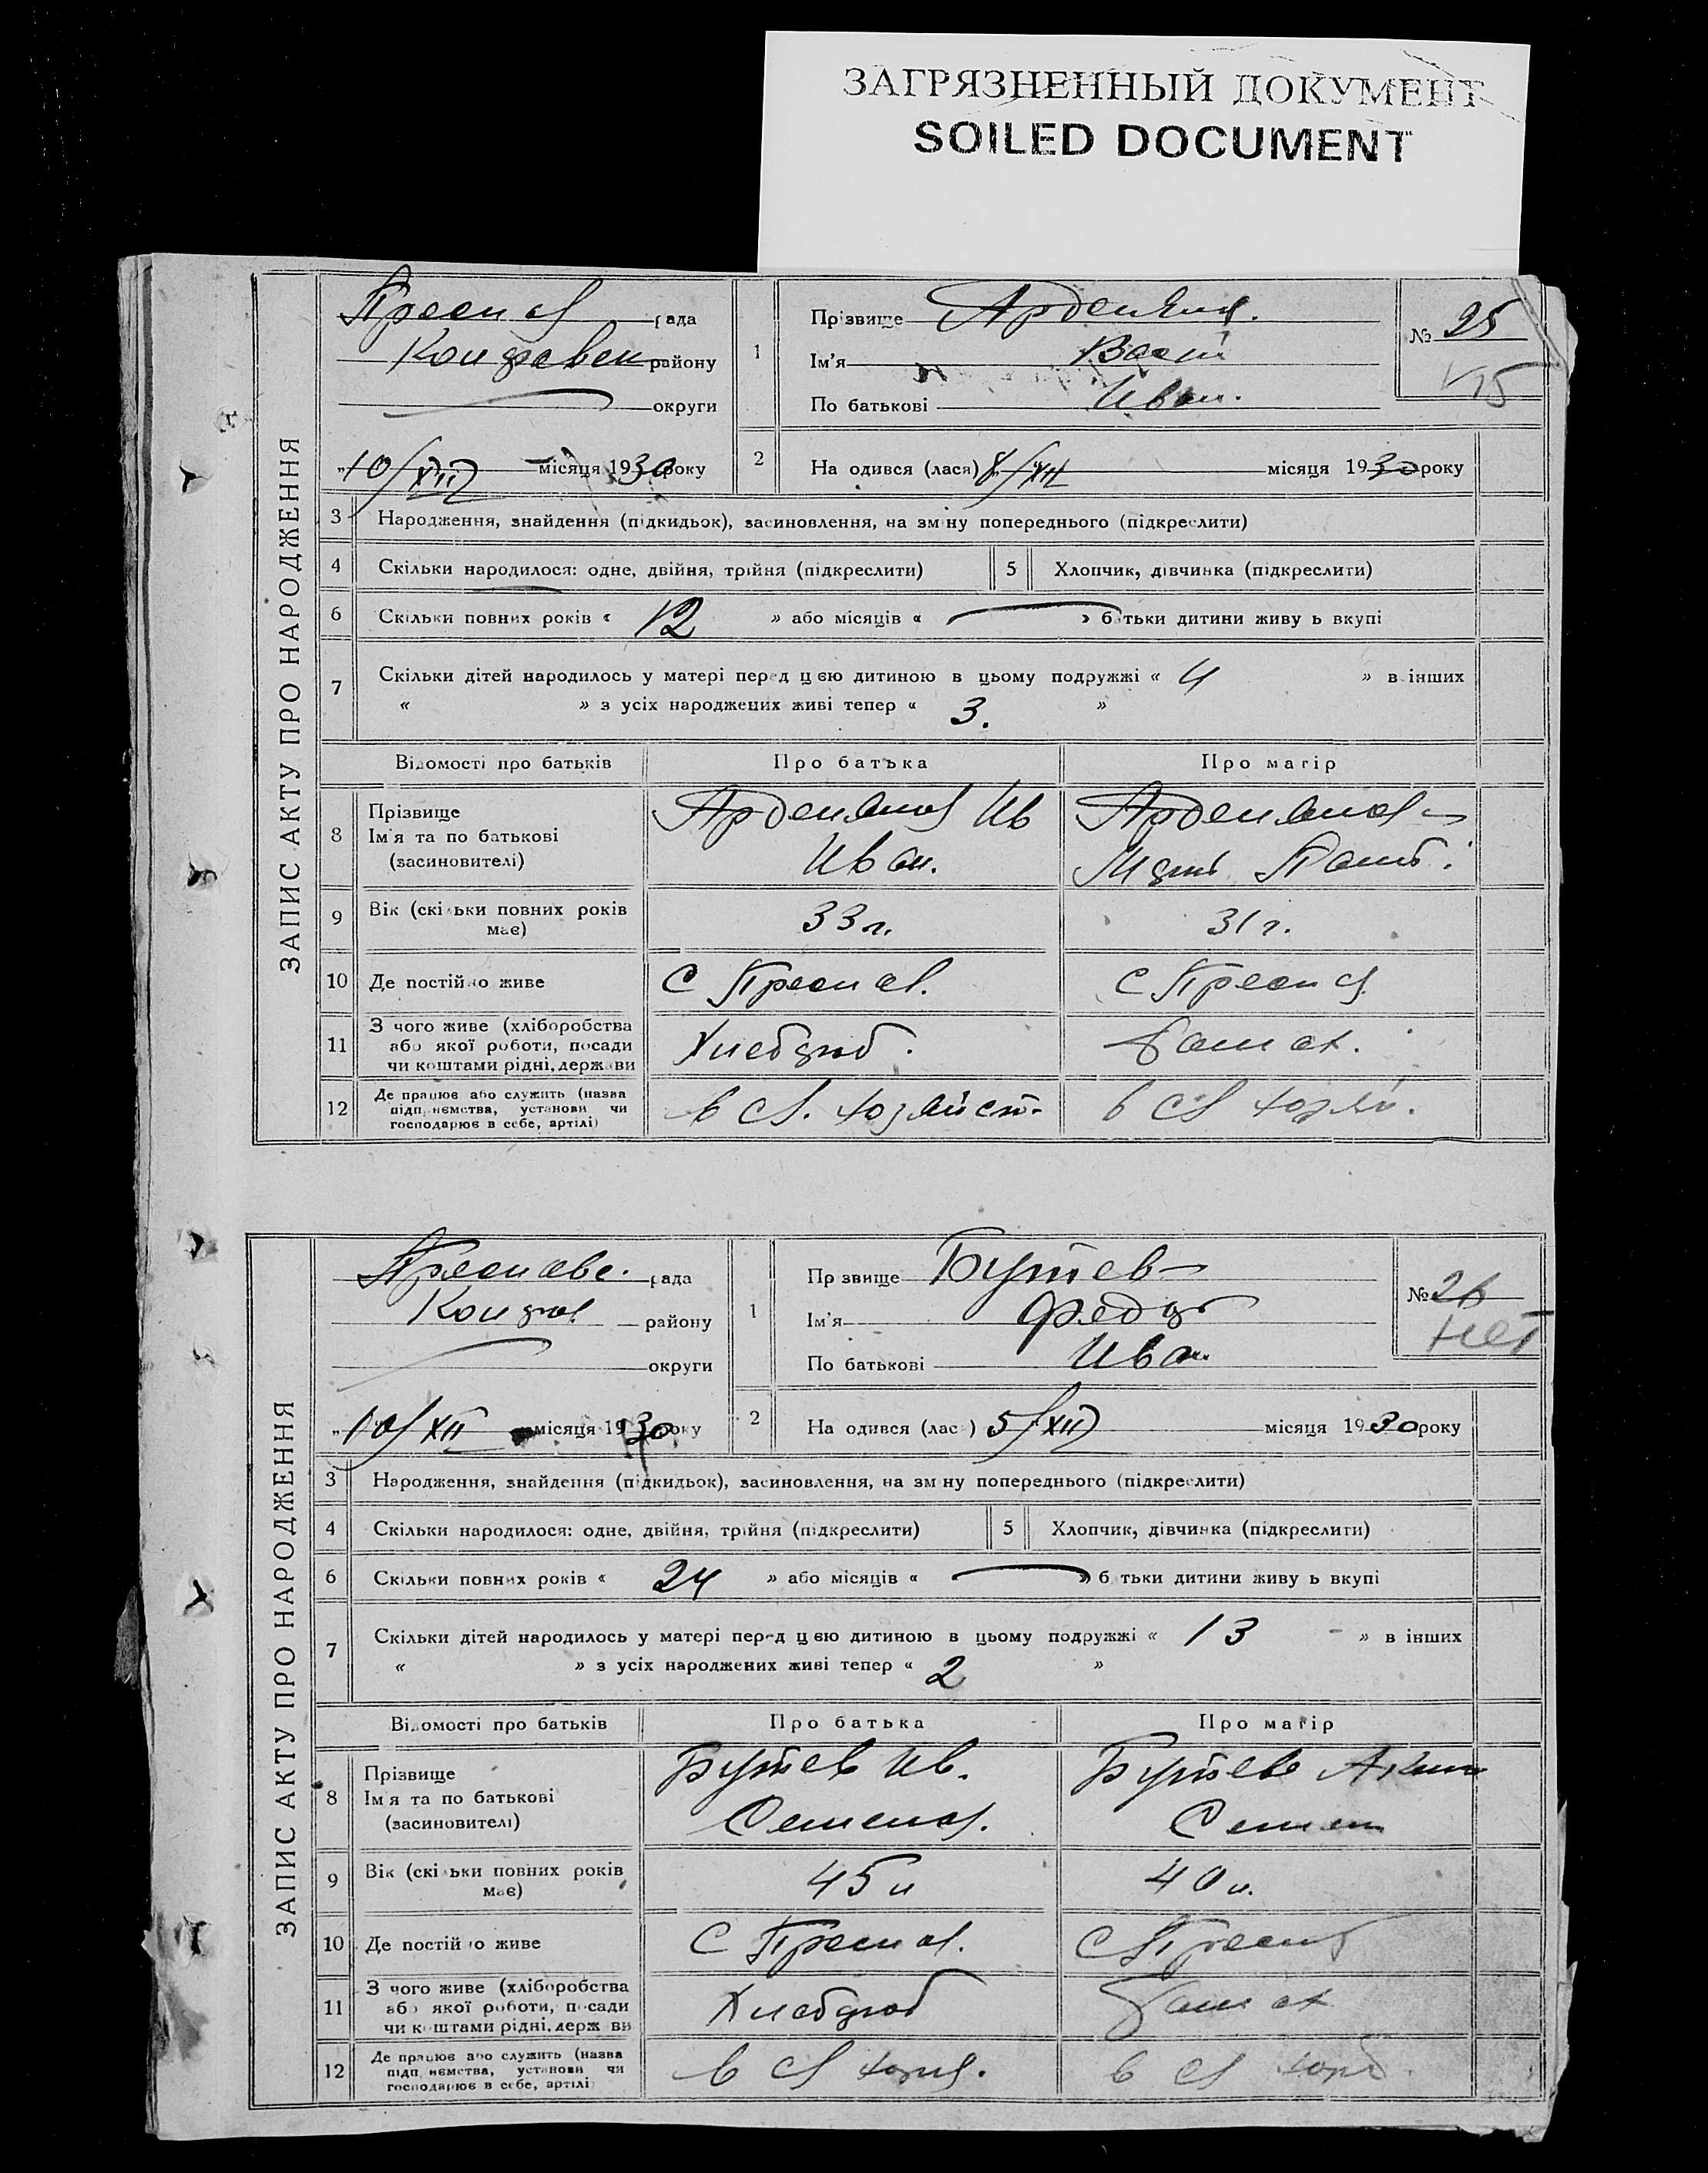 ЗАГРЯЗНЕННЫЙ ДОКУМЕНТ
SOILED DOCUMENT
ЗАПИС АКТУ ПРО НАРОДЖЕННЯ
Преслав рада
района
округи
„10/XII місяця 1930 року
1 Прізвище
Ім'я Васи
По батькові Иван.
№ 25
2 На одився (лася) XII місяця 1930 року
3 Народження, знайдення (підкидьок), засиновлення, на зміну попереднього (підкреслити)
4 Скільки народилося: одне, двійня, трійня (підкреслити) 5 Хлопчик, дівчинка (підкреслити)
6 Скільки повних років « 12 » або місяців « — » батьки дитини живу ь вкупі
7 Скільки дітей народилось у матері перед цією дитиною в цьому подружжі « 4 » в інших
« » з усіх народжених живі тепер « 3. »
Відомості про батьків Про батька Про матір
8 Прізвище
Ім'я та по батькові Иван.
(засиновителі)
9 Вік (скільки повних років має) 33 л. 31 г.
10 Де постійно живе С Преслав. С Преслав
11 З чого живе (хліборобства
або якої роботи, посади
чи коштами рідні, держави Хлебороб.
12 Де працює або служить (назва
підприємства, установи чи
господарює в себе, артілі) в св. хозяйст. в св хозяй.
ЗАПИС АКТУ ПРО НАРОДЖЕННЯ
Преславс. рада
району
округи
„10/XII місяця 1930 року
1 Прізвище Бутев
Ім'я Федор
По батькові Иван
№ 26
нет
2 На одився (лас ) 5/XII місяця 1930 року
3 Народження, знайдення (підкидьок), засиновлення, на зміну попереднього (підкреслити)
4 Скільки народилося: одне, двійня, трійня (підкреслити) 5 Хлопчик, дівчинка (підкреслити)
6 Скільки повних років « 24 » або місяців « — » б тьки дитини живу ь вкупі
7 Скільки дітей народилось у матері перед цією дитиною в цьому подружжі « 13 » в інших
« » з усіх народжених живі тепер « 2 »
Відомості про батьків Про батька Про матір
8 Прізвище Бутев Ив. Бутева
Ім'я та по батькові Семенов. Семен
(засиновителі)
9 Вік (скільки повних років має) 45 л 40 л.
10 Де постійно живе С Преслав. С Преслав
11 З чого живе (хліборобства
або якої роботи, посади
чи коштами рідні, держави Хлебороб
12 Де працює або служить (назва
підприємства, установи чи
господарює в себе, артілі в св хозяй. в св хозяй.